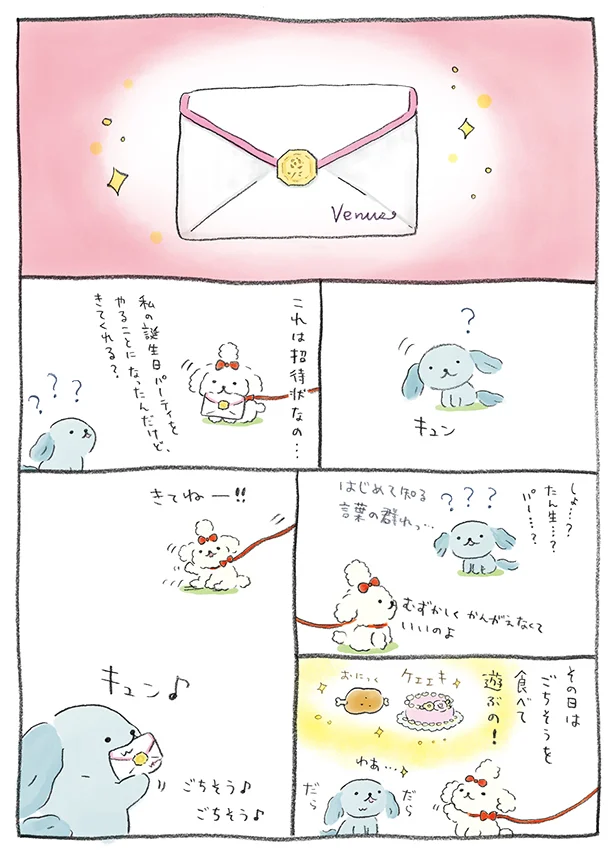 Venus
?
キュン
これは招待状なの…
私の誕生日パーティを
やることになったんだけど、
きてくれる?
???
しょ…?
たん生…?
パー…?
???
はじめて知る
言葉の群れっ…
むずかしく かんがえなくて
いいのよ
その日は
ごちそうを
食べて
遊ぶの!
ケエエキ
おにっく
わぁ…
だら
だら
きてねー!!
キュン♪
ごちそう♪
ごちそう♪